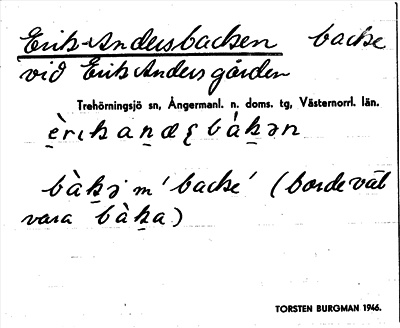 Erik-Andersbacken backe
vid Erik Anders gården
Trehörningsjö sn, Ångermanl. n. doms. tg, Västernorrl. län.
bàk̠ə m 'backe' (borde väl
vara bàk̠a)
TORSTEN BURGMAN 1946.